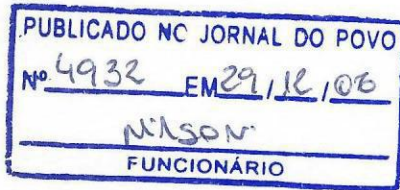 PUBLICADO NO JORNAL DO POVO
Nº 4932 EM 29/12/06
Nilson
FUNCIONÁRIO